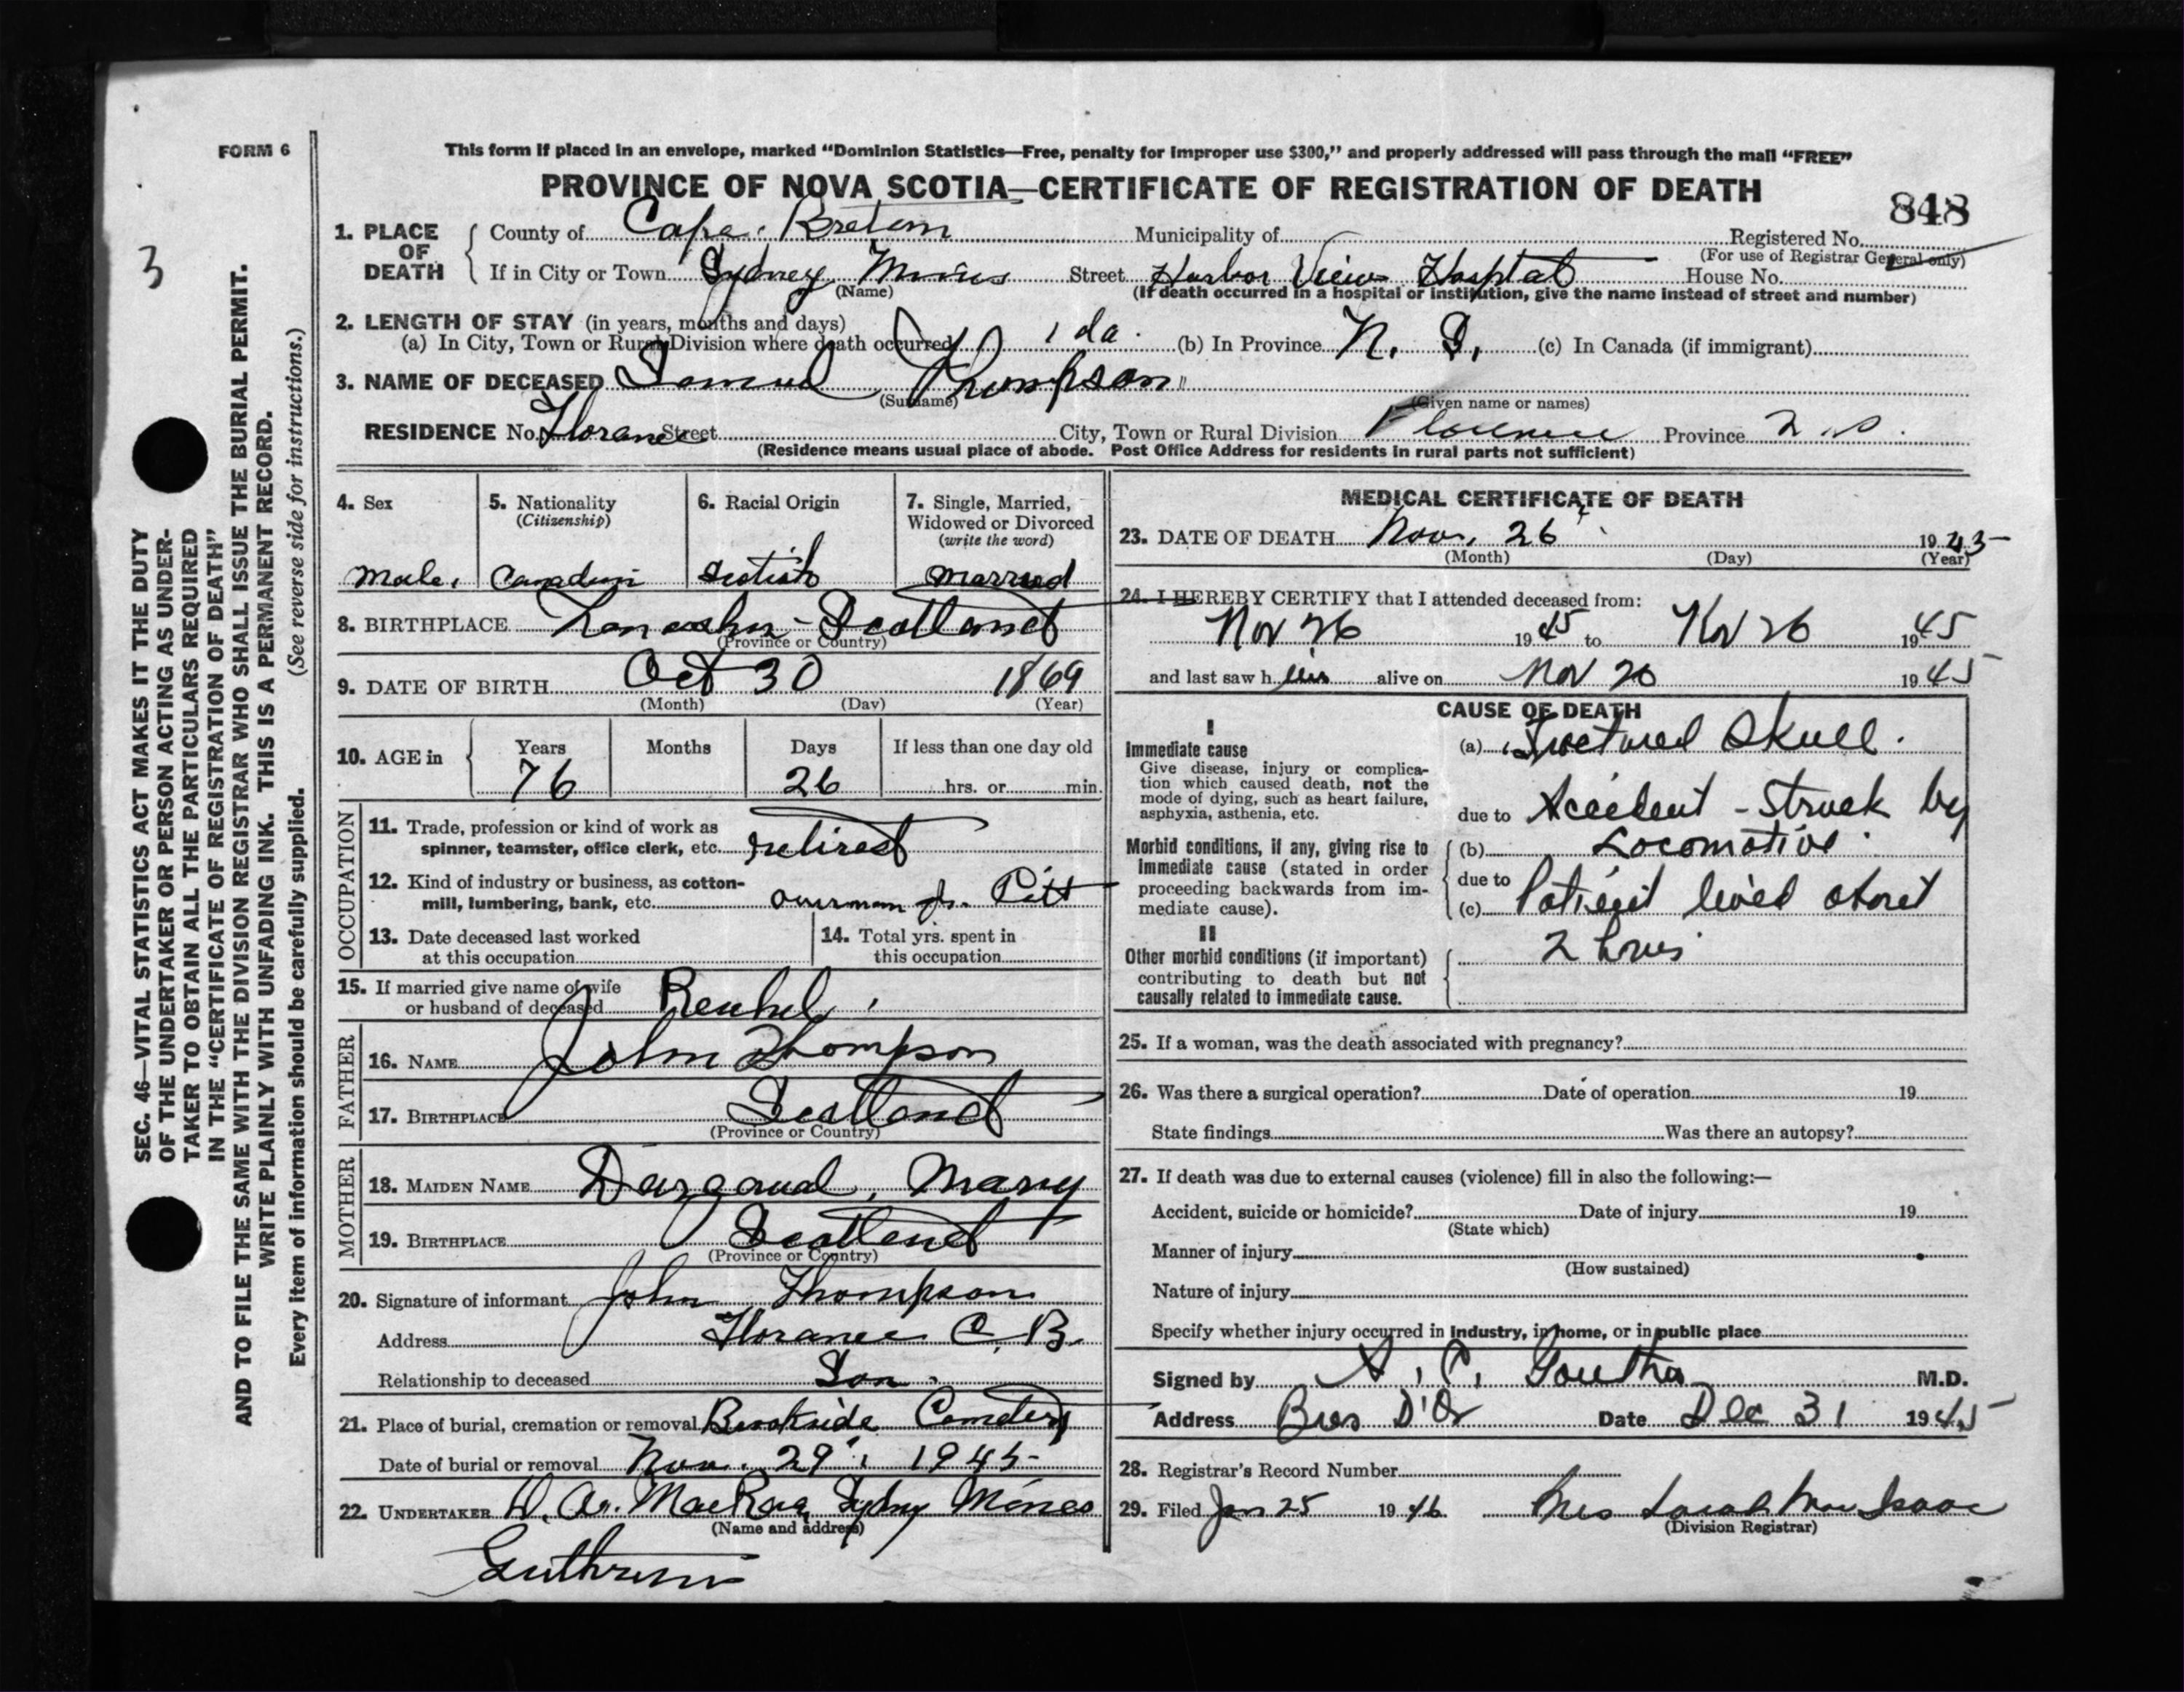 FORM 6
This form if placed in an envelope, marked "Dominion Statistics—Free, penalty for improper use $300," and properly addressed will pass through the mail "FREE"
PROVINCE OF NOVA SCOTIA—CERTIFICATE OF REGISTRATION OF DEATH
848
3
1. PLACE OF DEATH
County of Cape Bretom Municipality of Registered No.
(For use of Registrar General only)
If in City or Town Sydney Mines Street Harbor View Hosptal House No.
(Name) (If death occurred in a hospital or institution, give the name instead of street and number)
2. LENGTH OF STAY (in years, months and days)
(a) In City, Town or Rural Division where death occurred 1 da. (b) In Province N. S. (c) In Canada (if immigrant)
3. NAME OF DECEASED Samuel Thompson
(Surname) (Given name or names)
RESIDENCE No. Florance Street City, Town or Rural Division Florence Province N.S.
(Residence means usual place of abode. Post Office Address for residents in rural parts not sufficient)
4. Sex
Male.
5. Nationality
(Citizenship)
Canadian
6. Racial Origin
Scotish
7. Single, Married,
Widowed or Divorced
(write the word)
Married
8. BIRTHPLACE - Scotland
(Province or Country)
9. DATE OF BIRTH Oct 30 1869
(Month) (Day) (Year)
10. AGE in
Years Months Days If less than one day old
76 26 hrs. or min.
OCCUPATION
11. Trade, profession or kind of work as
spinner, teamster, office clerk, etc. retired
12. Kind of industry or business, as cotton-
mill, lumbering, bank, etc. overman Pitt
13. Date deceased last worked
at this occupation
14. Total yrs. spent in
this occupation
15. If married give name of wife
or husband of deceased
FATHER
16. NAME John Thompson
17. BIRTHPLACE Scotland
(Province or Country)
MOTHER
18. MAIDEN NAME Mary
19. BIRTHPLACE Scotland
(Province or Country)
20. Signature of informant John Thompson
Address Florance C. B.
Relationship to deceased Son.
21. Place of burial, cremation or removal Brookside Cemetery
Date of burial or removal Nov. 29, 1945
22. UNDERTAKER Sydney Mines
(Name and address)
MEDICAL CERTIFICATE OF DEATH
23. DATE OF DEATH Nov. 26 1945
(Month) (Day) (Year)
24. I HEREBY CERTIFY that I attended deceased from:
Nov 26 1945 to Nov 26 1945
and last saw h im alive on Nov 26 1945
CAUSE OF DEATH
I
Immediate cause
Give disease, injury or complica-
tion which caused death, not the
mode of dying, such as heart failure,
asphyxia, asthenia, etc.
(a) Fractured Skull.
due to Accident - Struck by
Morbid conditions, if any, giving rise to
immediate cause (stated in order
proceeding backwards from im-
mediate cause).
(b) Locomotive.
due to
(c) Patient lived about
II
Other morbid conditions (if important)
contributing to death but not
causally related to immediate cause.
2 hours
25. If a woman, was the death associated with pregnancy?
26. Was there a surgical operation? Date of operation 19
State findings Was there an autopsy?
27. If death was due to external causes (violence) fill in also the following:—
Accident, suicide or homicide? Date of injury 19
(State which)
Manner of injury
(How sustained)
Nature of injury
Specify whether injury occurred in industry, in home, or in public place
Signed by A. C. M.D.
Address Bras D'Or Date Dec 31 1945
28. Registrar's Record Number
29. Filed Jan 25 1946 Mrs Sarah MacIsaac
(Division Registrar)
SEC. 46—VITAL STATISTICS ACT MAKES IT THE DUTY
OF THE UNDERTAKER OR PERSON ACTING AS UNDER-
TAKER TO OBTAIN ALL THE PARTICULARS REQUIRED
IN THE "CERTIFICATE OF REGISTRATION OF DEATH"
AND TO FILE THE SAME WITH THE DIVISION REGISTRAR WHO SHALL ISSUE THE BURIAL PERMIT.
WRITE PLAINLY WITH UNFADING INK. THIS IS A PERMANENT RECORD.
Every item of information should be carefully supplied. (See reverse side for instructions.)